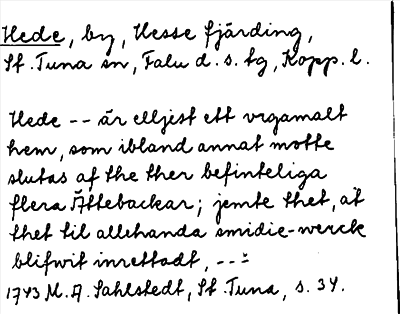 Hede, by, Hesse fjärding,
St. Tuna sn, Falu d. s. tg, Kopp. l.
Hede -- är elljest ett urgamalt
hem, som ibland annat motte
slutas af the ther befinteliga
flera Ättebackar; jemte thet, at
thet til allehanda smidie-werck
blifwit inrettadt, --
1743 M. A. Sahlstedt, St. Tuna, s. 34.